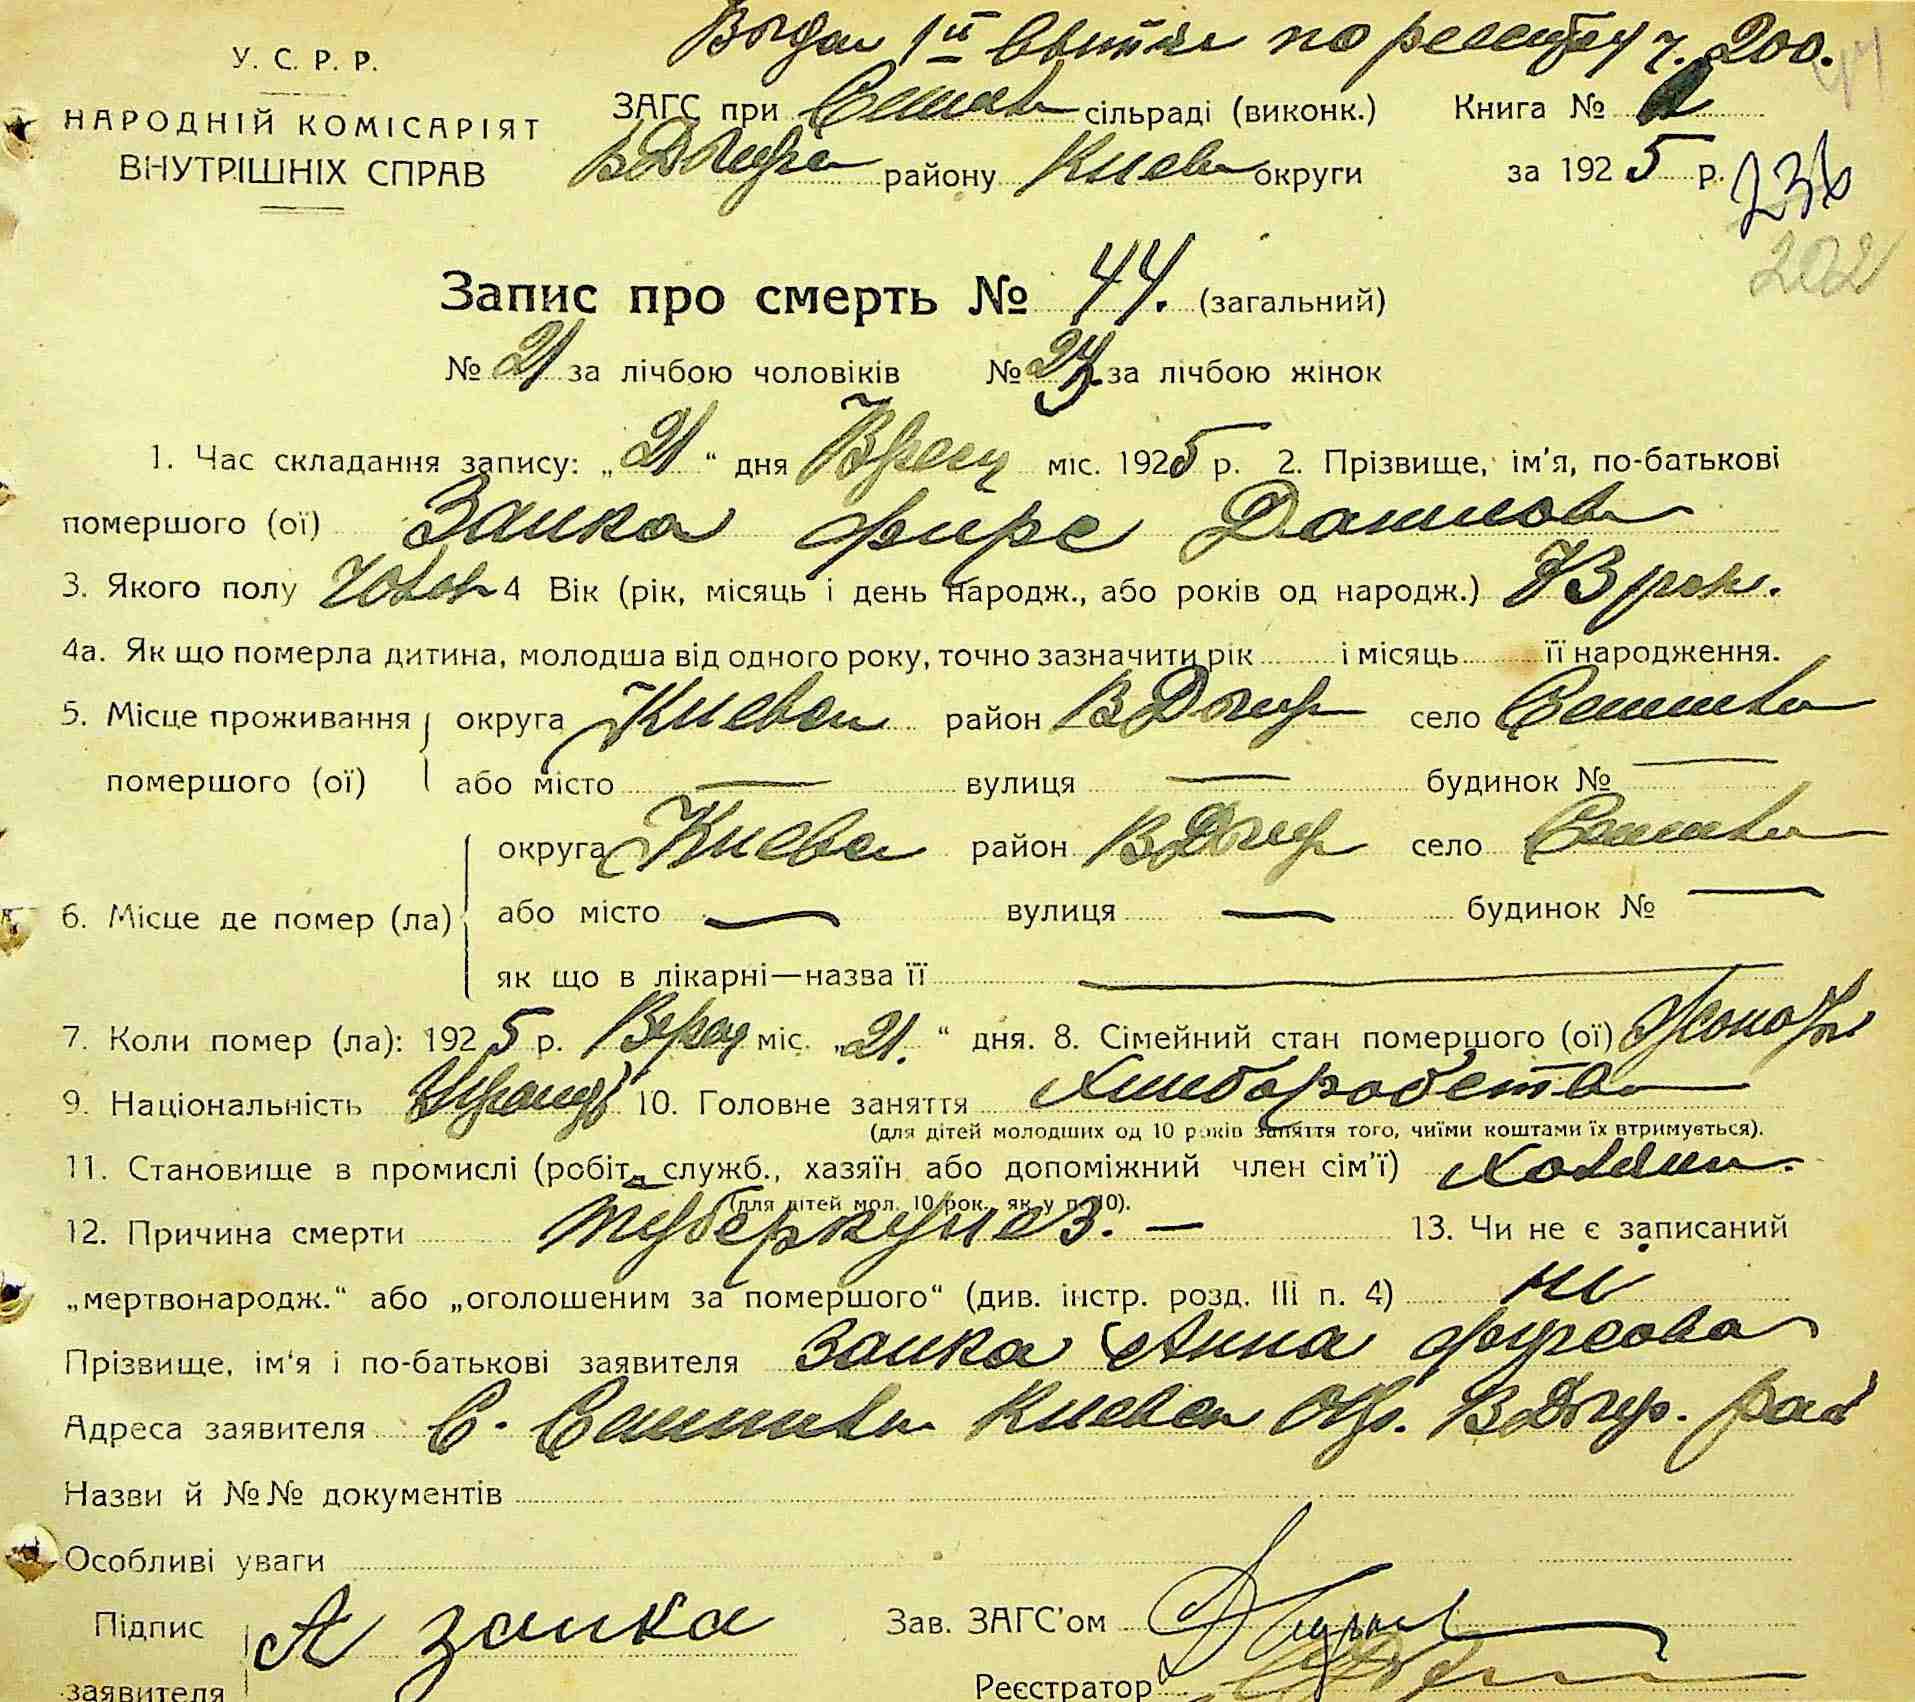 Выдан 1й по реестру ч. 200.
У. С. Р. Р.
НАРОДНІЙ КОМІСАРІЯТ
ВНУТРІШНІХ СПРАВ
ЗАГС при сільраді (виконк.) Книга №
району Киев округи за 1925 р.
236
202
Запис про смерть № 44. (загальний)
№ 21 за лічбою чоловіків № за лічбою жінок
1. Час складання запису: „21“ дня міс. 1925 р. 2. Прізвище, ім'я, по-батькові
помершого (ої) Заика Фирс Данилов
3. Якого полу чолов 4 Вік (рік, місяць і день народж., або років од народж.) рок.
4а. Як що померла дитина, молодша від одного року, точно зазначити рік і місяць її народження.
5. Місце проживання округа Киева район ВДымер село
помершого (ої) або місто — вулиця — будинок № —
округа Киева район ВДымер село
6. Місце де помер (ла) або місто — вулиця — будинок № —
як що в лікарні—назва її —
7. Коли помер (ла): 1925 р. міс. „21.“ дня. 8. Сімейний стан помершого (ої)
9. Національність 10. Головне заняття Хлиборобство
(для дітей молодших од 10 років заняття того, чиїми коштами їх втримується).
11. Становище в промислі (робіт., служб., хазяїн або допоміжний член сім'ї) хозяин.
(для дітей мол. 10 рок., як у п. 10).
12. Причина смерти туберкулез. — 13. Чи не є записаний
„мертвонародж.“ або „оголошеним за помершого“ (див. інстр. розд. III п. 4) ні
Прізвище, ім'я і по-батькові заявителя Заика Анна Фирсова
Адреса заявителя С. Киевск Окр. ВДымер. рай
Назви й №№ документів
Особливі уваги
Підпис А Заика Зав. ЗАГС'ом
заявителя Реєстратор